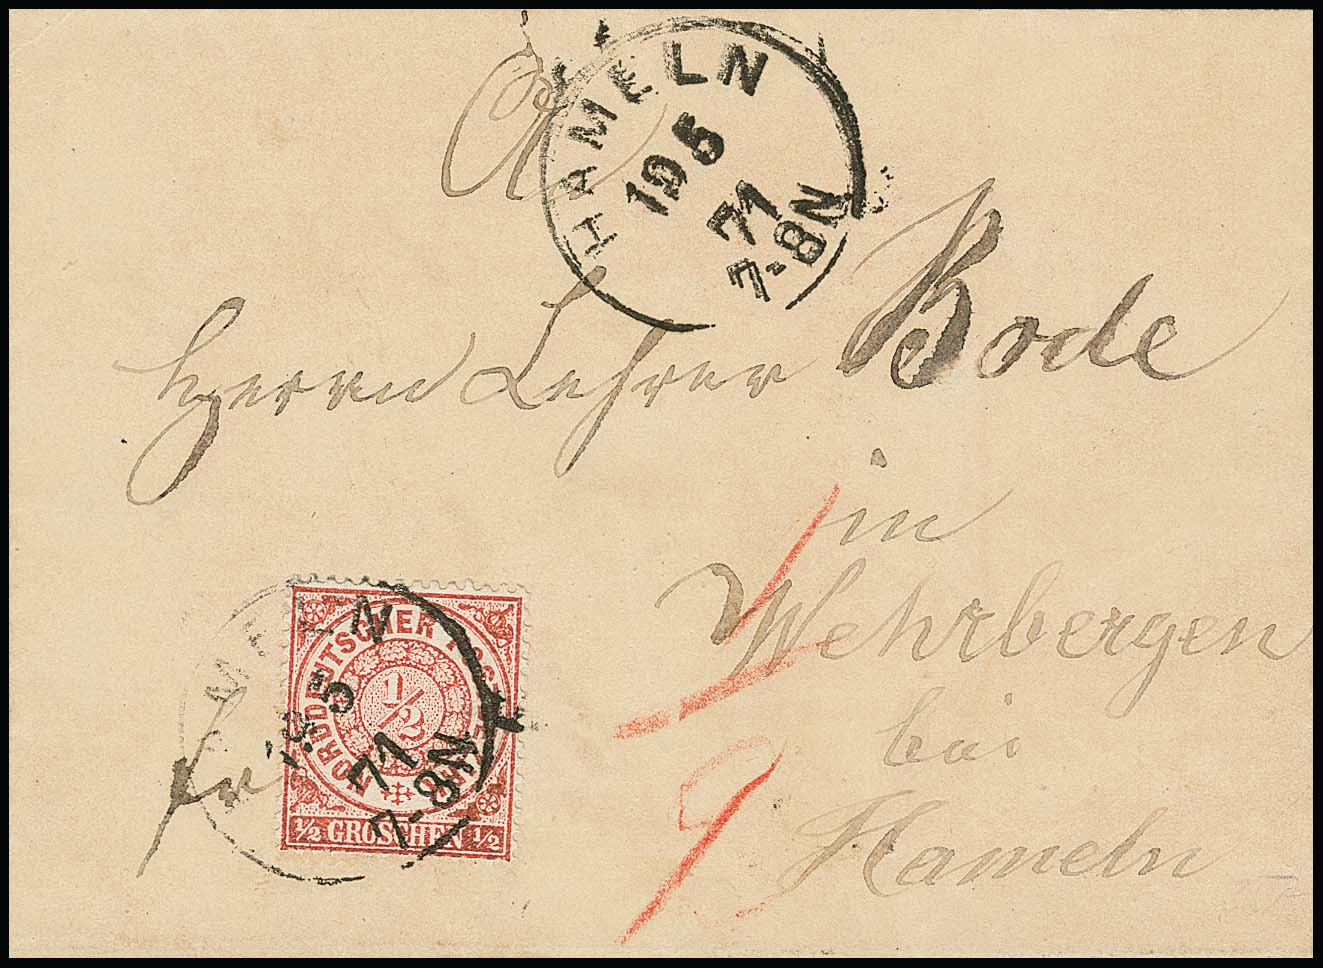 HAMELN
19 5
71
7-8N
An
Herrn Lehrer Bode
in
Wehrbergen
bei
Hameln
fr
NORDDEUTSCHER POSTBEZIRK
1/2
1/2 GROSCHEN 1/2
HAMELN
19 5
71
7-8N
1/2